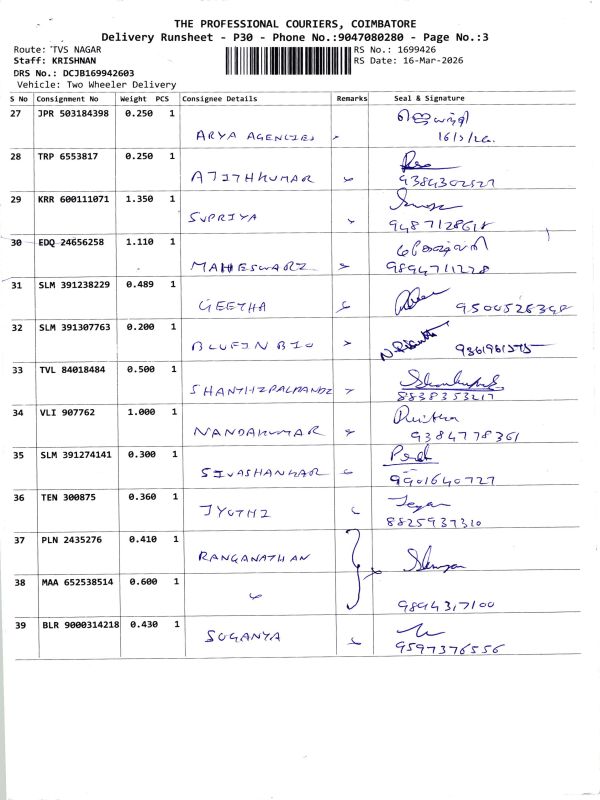 THE PROFESSIONAL COURIERS, COIMBATORE
Delivery Runsheet - P30 - Phone No.:9047080280 - Page No.:3
Route: TVS NAGAR
RS No.: 1699426
Staff: KRISHNAN
RS Date: 16-Mar-2026
DRS No.: DCJB169942603
Vehicle: Two Wheeler Delivery
S No Consignment No Weight PCS Consignee Details Remarks Seal & Signature
27 JPR 503184398 0.250 1 ARYA AGENCIES
28 TRP 6553817 0.250 1 AJITHKUMAR 9384302527
29 KRR 600111071 1.350 1 SUPRIYA 9487128618
30 EDQ 24656258 1.110 1 MAHESWARI 9894711228
31 SLM 391238229 0.489 1 GEETHA
32 SLM 391307763 0.200 1 BLUFIN BIO
33 TVL 84018484 0.500 1 8838353217
34 VLI 907762 1.000 1 NANDAKUMAR 9384778361
35 SLM 391274141 0.300 1 SIVASHANKAR 9901640727
36 TEN 300875 0.360 1 JYOTHI 8825937310
37 PLN 2435276 0.410 1 RANGANATHAN
38 MAA 652538514 0.600 1 9894317100
39 BLR 9000314218 0.430 1 SUGANYA 9597376556